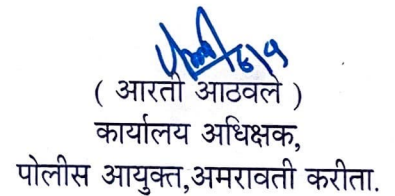 6/9
( आरती आठवले )
कार्यालय अधिक्षक,
पोलीस आयुक्त,अमरावती करीता.